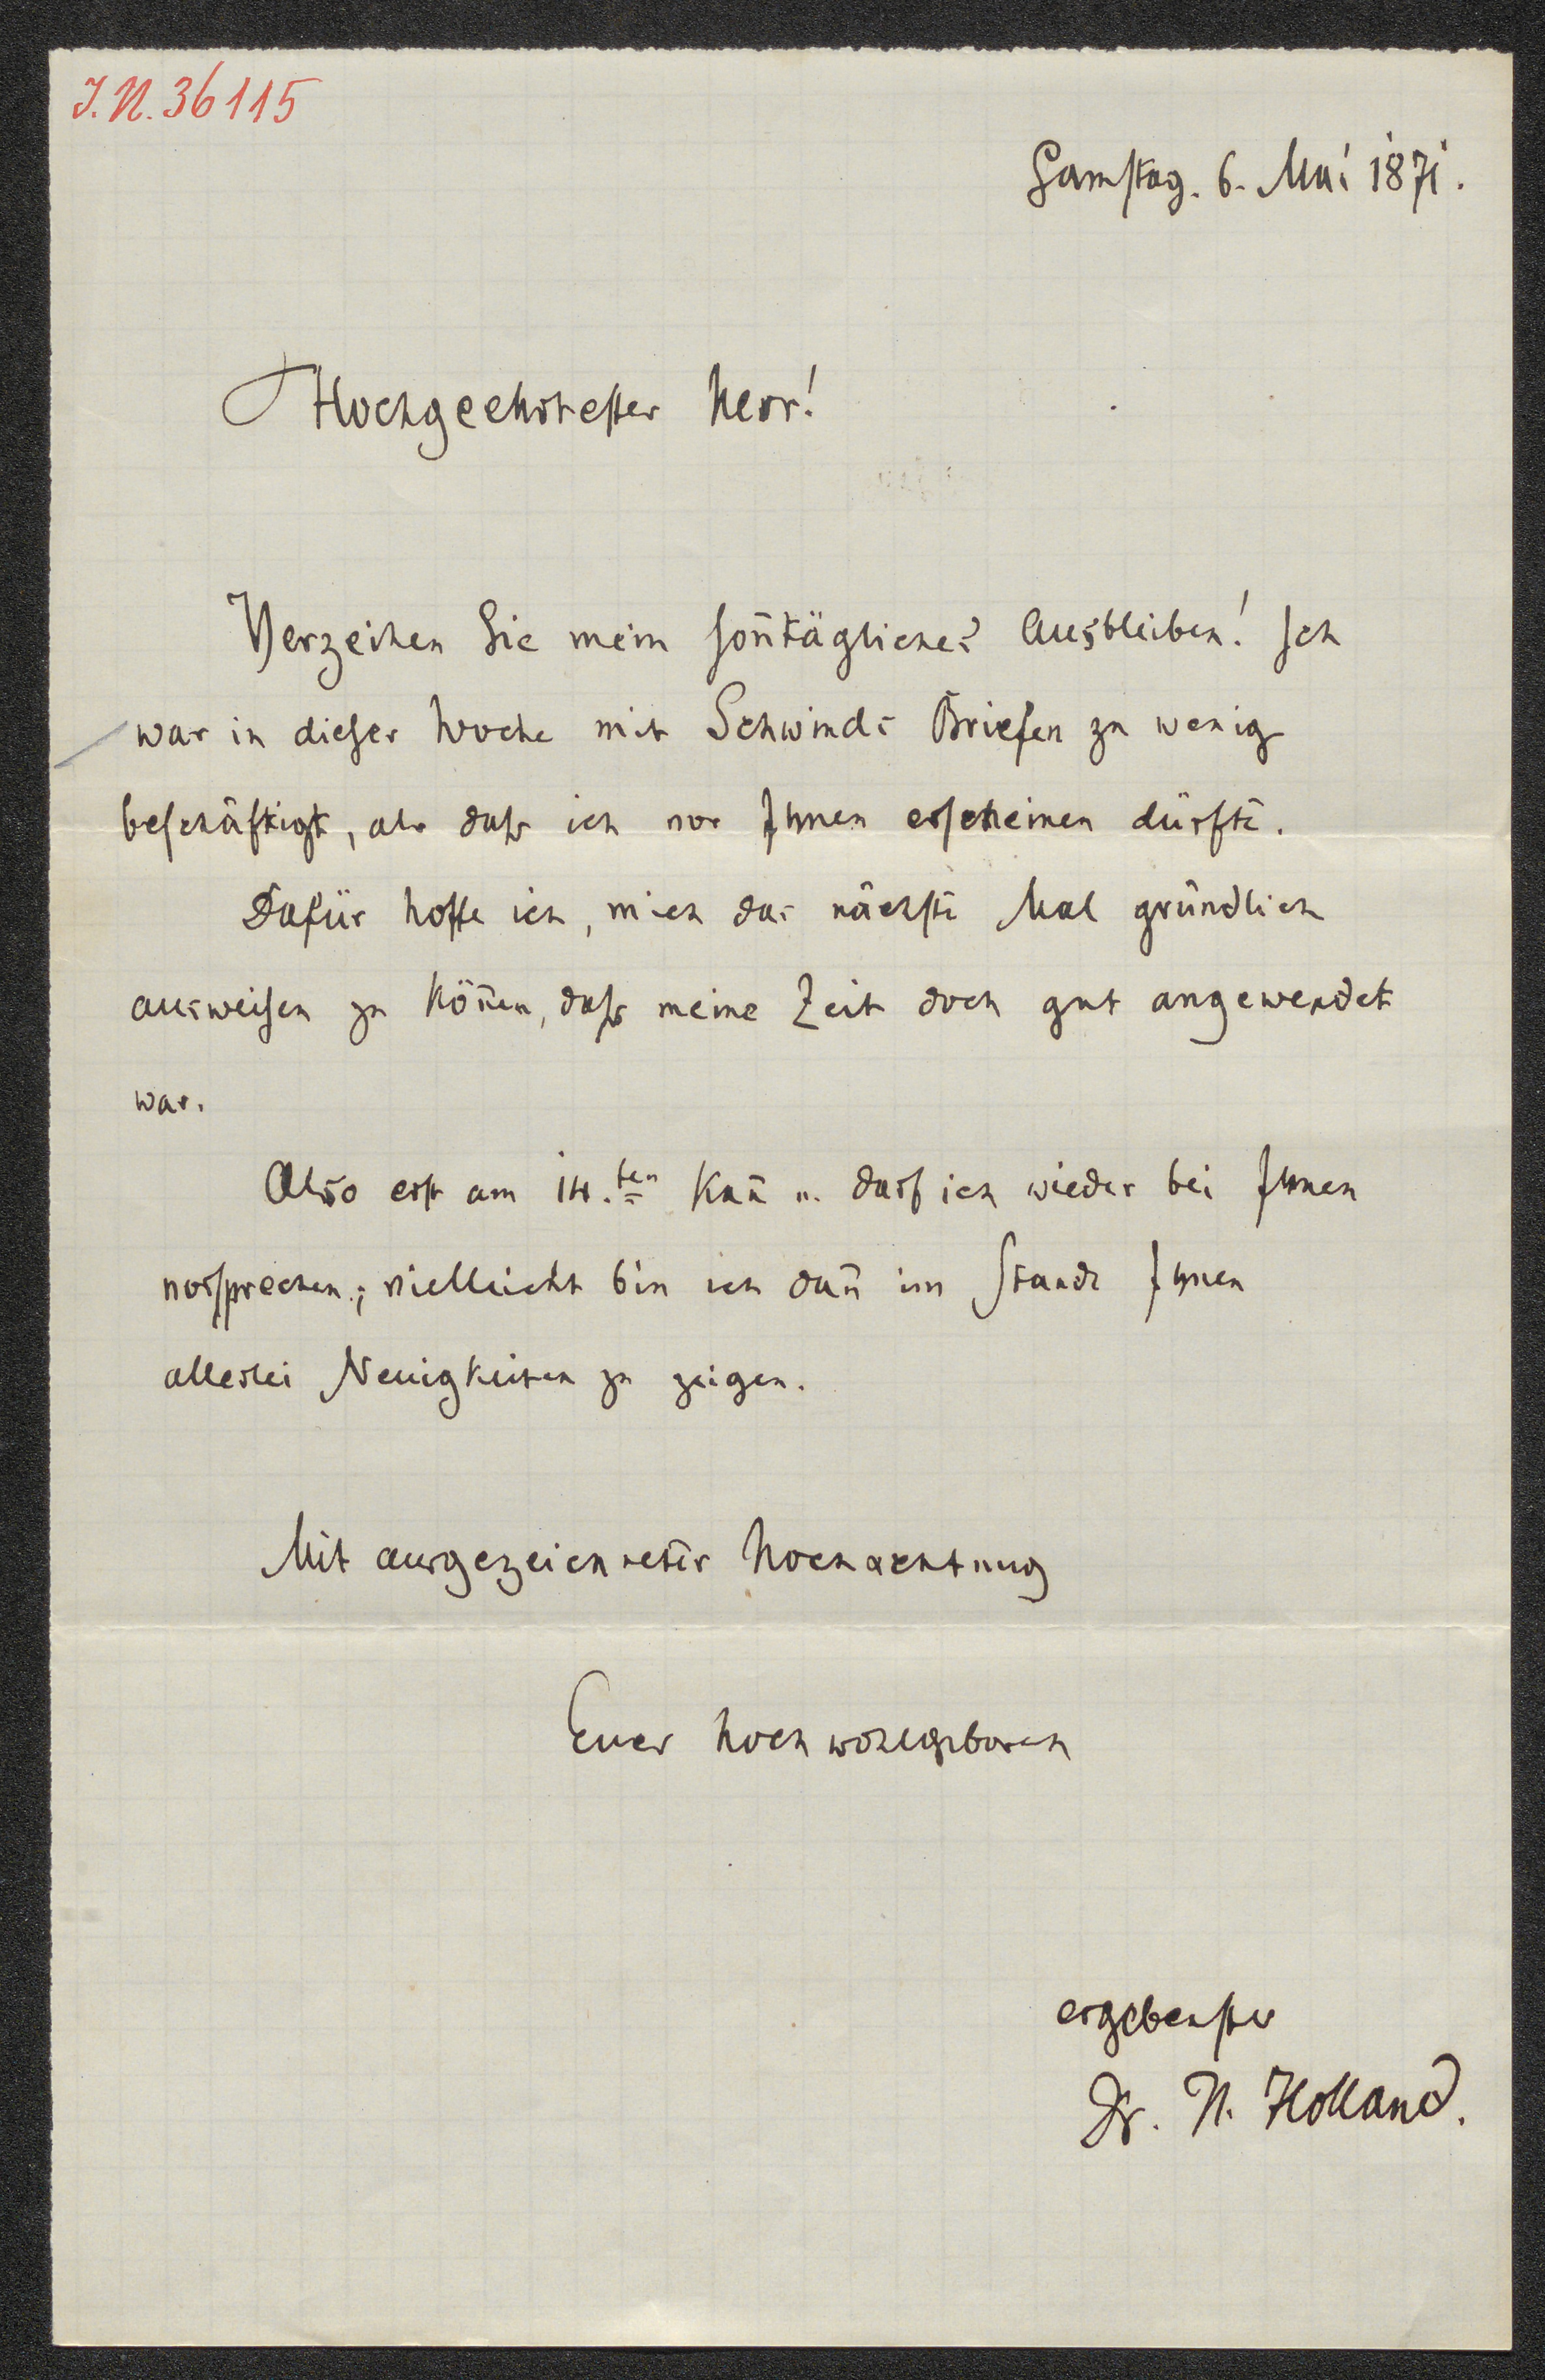 I.N. 36115
Samstag. 6. Mai 1871.
Hochgeehrtester Herr!
Verzeihen Sie mein soñtägliches Ausbleiben! Ich
war in dieser Woche mit Schwinds Briefen zu wenig
beschäftigt, als daß ich vor Ihnen erscheinen dürfte.
Dafür hoffe ich, mich das nächste Mal gründlich
ausweisen zu köñen, daß meine Zeit doch gut angewendet
war.
Also erst am 14.ten kañ u. darf ich wieder bei Ihnen
vorsprechen; vielleicht bin ich dañ im Stande Ihnen
allerlei Neuigkeiten zu zeigen.
Mit ausgezeichneter Hochachtung
Euer Hochwohlgeboren
ergebenster
Dr. H. Holland.